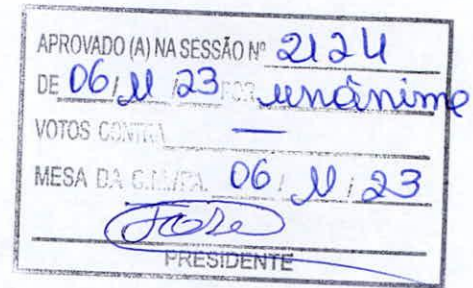 APROVADO (A) NA SESSÃO Nº 2124
DE 06/11/23 POR unânime
VOTOS CONTRA —
MESA DA 06/11/23
PRESIDENTE